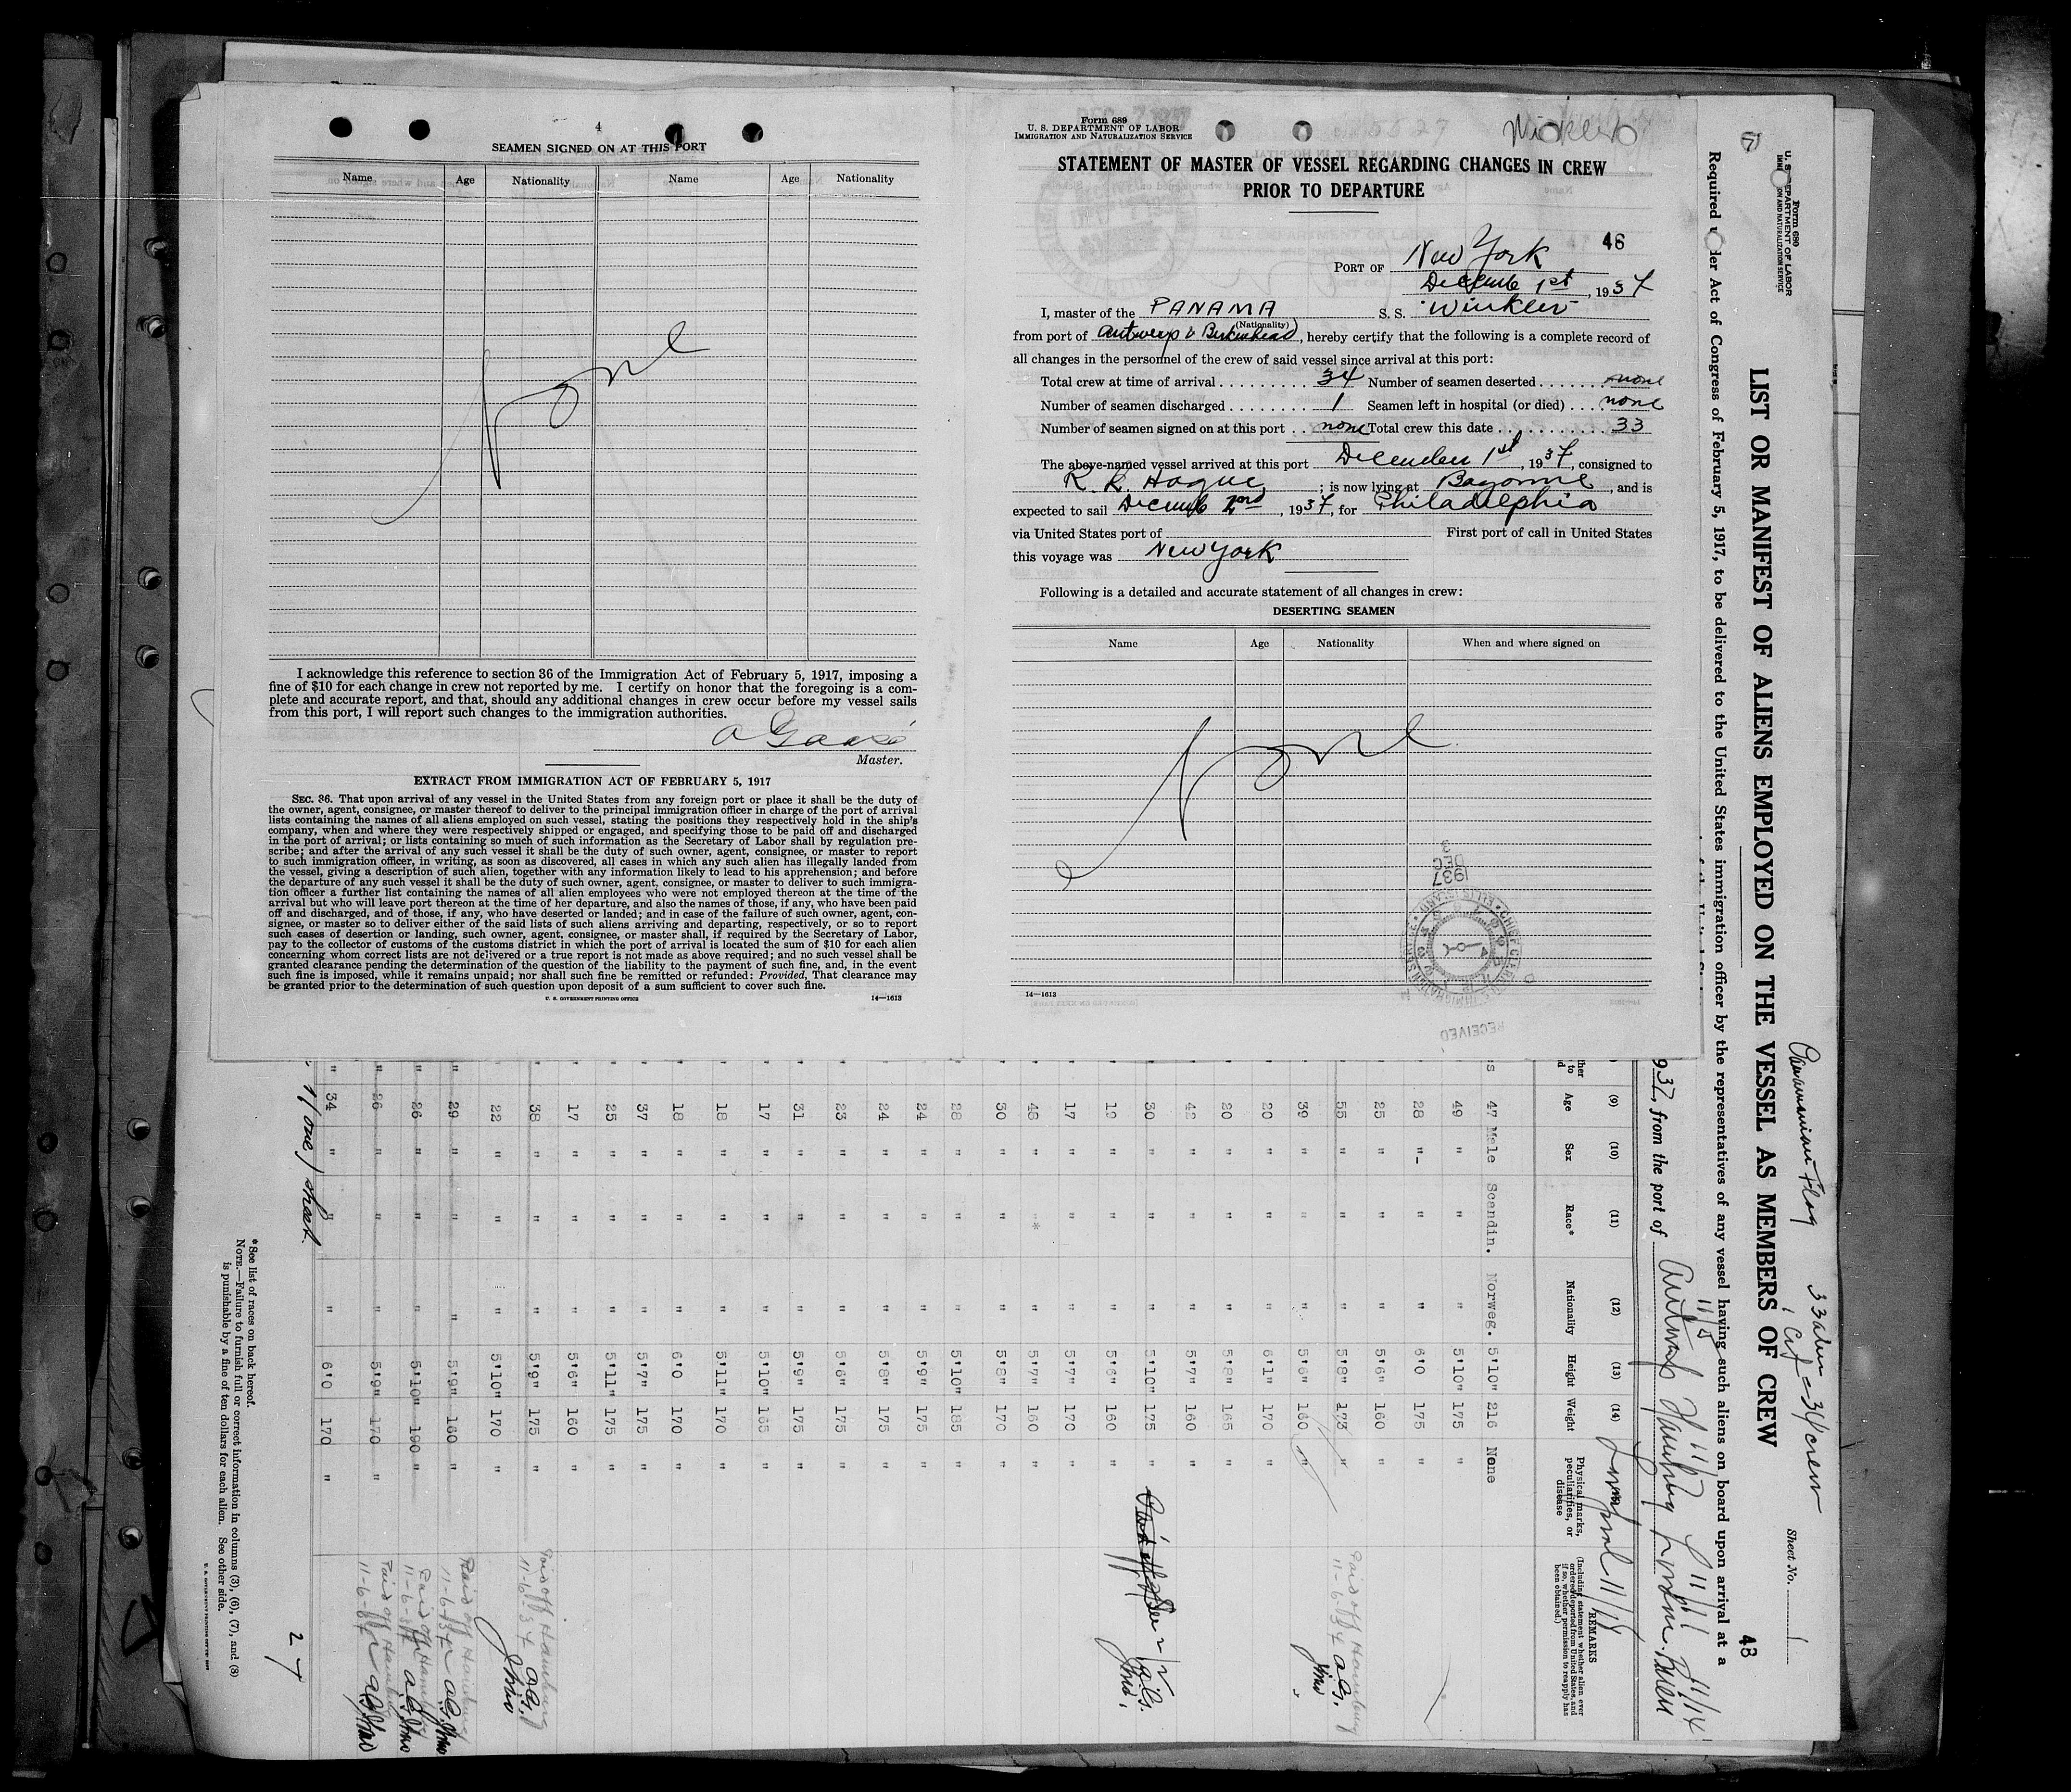 4
SEAMEN SIGNED ON AT THIS PORT
Name Age Nationality Name Age Nationality
None
I acknowledge this reference to section 36 of the Immigration Act of February 5, 1917, imposing a
fine of $10 for each change in crew not reported by me. I certify on honor that the foregoing is a com-
plete and accurate report, and that, should any additional changes in crew occur before my vessel sails
from this port, I will report such changes to the immigration authorities.
Master.
EXTRACT FROM IMMIGRATION ACT OF FEBRUARY 5, 1917
SEC. 36. That upon arrival of any vessel in the United States from any foreign port or place it shall be the duty of
the owner, agent, consignee, or master thereof to deliver to the principal immigration officer in charge of the port of arrival
lists containing the names of all aliens employed on such vessel, stating the positions they respectively hold in the ship's
company, when and where they were respectively shipped or engaged, and specifying those to be paid off and discharged
in the port of arrival; or lists containing so much of such information as the Secretary of Labor shall by regulation pre-
scribe; and after the arrival of any such vessel it shall be the duty of such owner, agent, consignee, or master to report
to such immigration officer, in writing, as soon as discovered, all cases in which any such alien has illegally landed from
the vessel, giving a description of such alien, together with any information likely to lead to his apprehension; and before
the departure of any such vessel it shall be the duty of such owner, agent, consignee, or master to deliver to such immigra-
tion officer a further list containing the names of all alien employees who were not employed thereon at the time of the
arrival but who will leave port thereon at the time of her departure, and also the names of those, if any, who have been paid
off and discharged, and of those, if any, who have deserted or landed; and in case of the failure of such owner, agent, con-
signee, or master so to deliver either of the said lists of such aliens arriving and departing, respectively, or so to report
such cases of desertion or landing, such owner, agent, consignee, or master shall, if required by the Secretary of Labor,
pay to the collector of customs of the customs district in which the port of arrival is located the sum of $10 for each alien
concerning whom correct lists are not delivered or a true report is not made as above required; and no such vessel shall be
granted clearance pending the determination of the question of the liability to the payment of such fine, and, in the event
such fine is imposed, while it remains unpaid; nor shall such fine be remitted or refunded: Provided, That clearance may
be granted prior to the determination of such question upon deposit of a sum sufficient to cover such fine.
U. S. GOVERNMENT PRINTING OFFICE 14—1613
Form 689
U. S. DEPARTMENT OF LABOR
IMMIGRATION AND NATURALIZATION SERVICE
STATEMENT OF MASTER OF VESSEL REGARDING CHANGES IN CREW
PRIOR TO DEPARTURE
46
PORT OF New York
December 1st, 1937
I, master of the PANAMA S. S. "Winkler"
(Nationality)
from port of Antwerp & Birkenhead, hereby certify that the following is a complete record of
all changes in the personnel of the crew of said vessel since arrival at this port:
Total crew at time of arrival 34 Number of seamen deserted none
Number of seamen discharged 1 Seamen left in hospital (or died) none
Number of seamen signed on at this port none Total crew this date 33
The above-named vessel arrived at this port December 1st, 1937, consigned to
R. L. Hague; is now lying at Bayonne, and is
expected to sail December 2nd, 1937, for Philadelphia
via United States port of First port of call in United States
this voyage was New York
Following is a detailed and accurate statement of all changes in crew:
DESERTING SEAMEN
Name Age Nationality When and where signed on
None
1937
DEC
3
RECEIVED
14—1613
Form 680
U. S. DEPARTMENT OF LABOR
IMMIGRATION AND NATURALIZATION SERVICE
Panamanian Flag
Sheet No. 1
43
LIST OR MANIFEST OF ALIENS EMPLOYED ON THE VESSEL AS MEMBERS OF CREW
Required under Act of Congress of February 5, 1917, to be delivered to the United States immigration officer by the representatives of any vessel having such aliens on board upon arrival at a
937, from the port of Antwerp Hamburg
(9) (10) (11) (12) (13) (14)
Age Sex Race* Nationality Height Weight Physical marks, peculiarities, or disease REMARKS
(Including statement whether alien ever ordered deported from United States, and if so, whether permission to reapply has been obtained.)
47 Male Scandin. Norweg. 5'10" 216 None
49 " " " 5'10" 175 "
28 " " " 6'0 175 "
25 " " " 5'6" 160 "
55 " " " 5'8" 173 " Paid off Hamburg 11-6-37
39 " " " 5'6" 160 "
20 " " " 6'1" 170 "
20 " " " 5'8" 165 "
42 " " " 5'7" 160 "
30 " " " 5'10" 175 "
19 " " " 5'6" 160 "
17 " " " 5'7" 170 "
48 " " " 5'7" 160 "
30 " " " 5'8" 170 "
28 " " " 5'10" 185 "
24 " " " 5'9" 175 "
24 " " " 5'8" 175 "
23 " " " 5'6" 175 "
31 " " " 5'9" 175 "
17 " " " 5'10" 165 "
18 " " " 5'11" 170 "
18 " " " 6'0 170 "
37 " " " 5'7" 175 "
25 " " " 5'11" 175 "
17 " " " 5'6" 160 "
38 " " " 5'9" 175 " Paid off Hamburg 11-6-37
22 " " " 5'10" 170 "
29 " " " 5'9" 160 " Paid off Hamburg 11-6-37
26 " " " 5'10" 190 " Paid off Hamburg 11-6-37
26 " " " 5'9" 170 " Paid off Hamburg 11-6-37
34 " " " 6'0 170 "
1/one/sheet.
*See list of races on back hereof.
NOTE.—Failure to furnish full or correct information in columns (3), (6), (7), and (8)
is punishable by a fine of ten dollars for each alien. See other side.